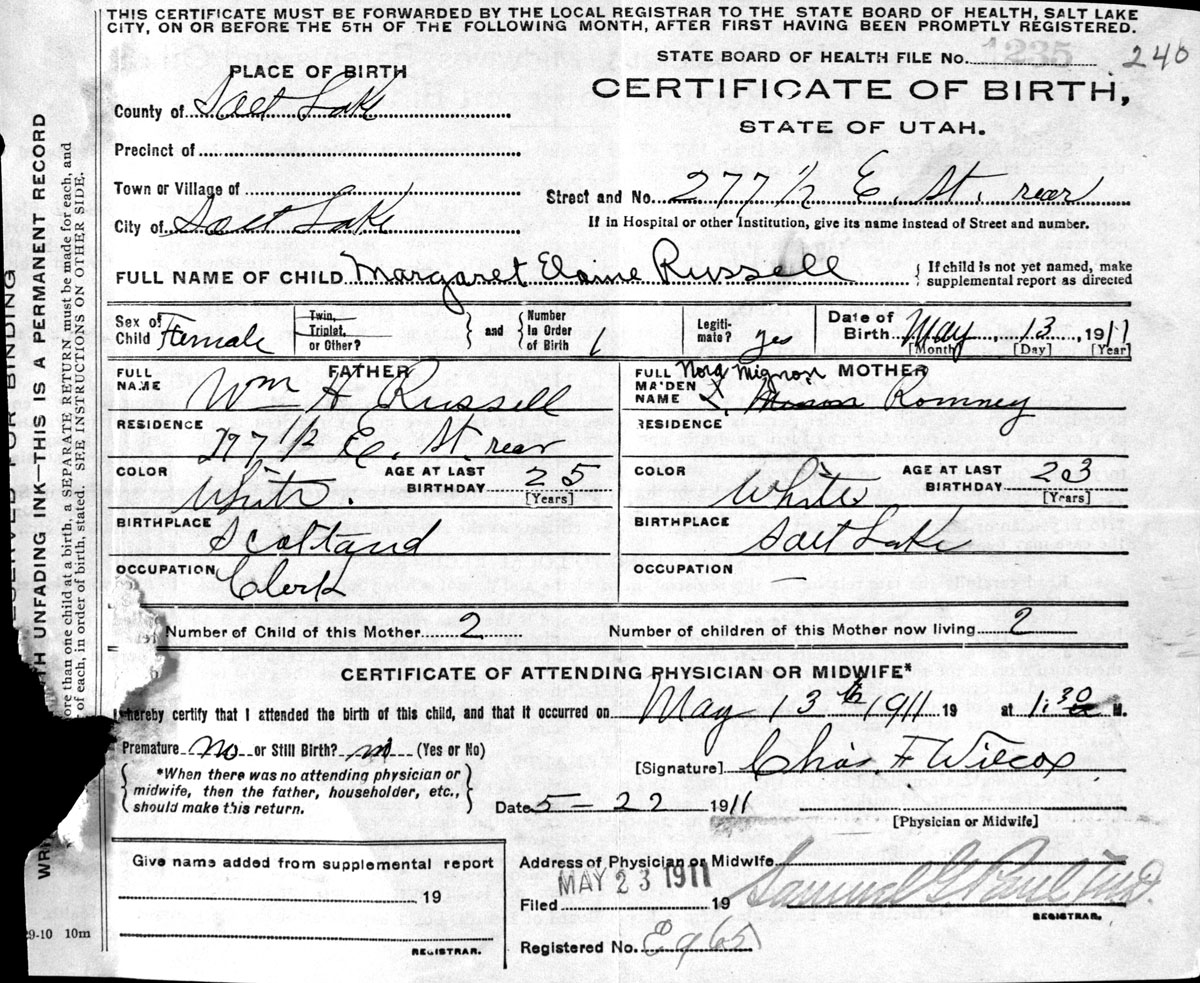 THIS CERTIFICATE MUST BE FORWARDED BY THE LOCAL REGISTRAR TO THE STATE BOARD OF HEALTH, SALT LAKE
CITY, ON OR BEFORE THE 5TH OF THE FOLLOWING MONTH, AFTER FIRST HAVING BEEN PROMPTLY REGISTERED.
STATE BOARD OF HEALTH FILE No. 1235 240
PLACE OF BIRTH
CERTIFICATE OF BIRTH,
County of Salt Lake
STATE OF UTAH.
Precinct of
Town or Village of
Street and No. 277 1/2 E. St. rear
City of Salt Lake
If in Hospital or other Institution, give its name instead of Street and number.
FULL NAME OF CHILD Margaret Elaine Russell
If child is not yet named, make
supplemental report as directed
Sex of Child Female
Twin, Triplet, or Other?
and
Number in Order of Birth 1
Legiti-mate? yes
Date of Birth May 13, 1911
[Month] [Day] [Year]
FATHER
FULL NAME Wm H Russell
MOTHER
FULL MAIDEN NAME Nora Mignon Romney
RESIDENCE 277 1/2 E. St. rear
RESIDENCE
COLOR White
AGE AT LAST BIRTHDAY 25
[Years]
COLOR White
AGE AT LAST BIRTHDAY 23
[Years]
BIRTHPLACE Scotland
BIRTHPLACE Salt Lake
OCCUPATION Clerk
OCCUPATION —
Number of Child of this Mother 2
Number of children of this Mother now living 2
CERTIFICATE OF ATTENDING PHYSICIAN OR MIDWIFE*
I hereby certify that I attended the birth of this child, and that it occurred on May 13th 1911 19 at 1:30 M.
Premature No or Still Birth? no (Yes or No)
[Signature] Chas. F Wilcox
*When there was no attending physician or
midwife, then the father, householder, etc.,
should make this return.
Date 5-22 1911
[Physician or Midwife]
Give name added from supplemental report
19
REGISTRAR.
Address of Physician or Midwife
MAY 23 1911
Filed 19
Samuel G. Paul M.D.
REGISTRAR.
Registered No. E965
29-10 10m
RESERVED FOR BINDING
WRITE WITH UNFADING INK—THIS IS A PERMANENT RECORD
more than one child at a birth, a SEPARATE RETURN must be made for each, and
of each, in order of birth, stated. SEE INSTRUCTIONS ON OTHER SIDE.